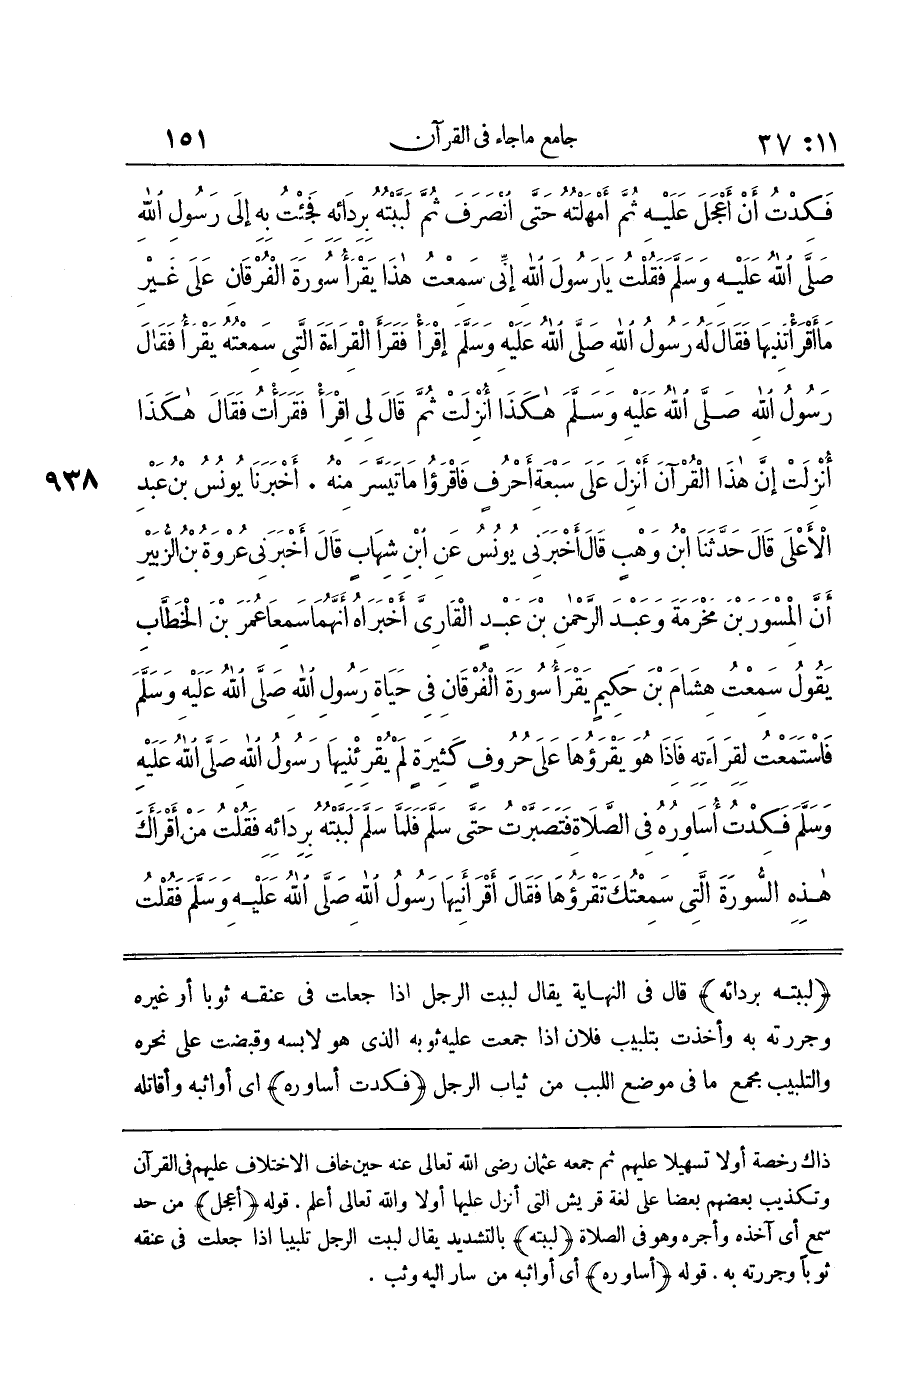 ١١: ٣٧ جامع ماجاء فى القرآن ١٥١
فَكِدْتُ أَنْ أَعْجَلَ عَلَيْهِ ثُمَّ أَمْهَلْتُهُ حَتَّى انْصَرَفَ ثُمَّ لَبَّبْتُهُ بِرِدَائِهِ فَجِئْتُ بِهِ إِلَى رَسُولِ اللهِ
صَلَّى اللهُ عَلَيْهِ وَسَلَّمَ فَقُلْتُ يَارَسُولَ اللهِ إِنِّى سَمِعْتُ هٰذَا يَقْرَأُ سُورَةَ الْفُرْقَانِ عَلَى غَيْرِ
مَاأَقْرَأْتَنِيهَا فَقَالَ لَهُ رَسُولُ اللهِ صَلَّى اللهُ عَلَيْهِ وَسَلَّمَ إِقْرَأْ فَقَرَأَ الْقِرَاءَةَ الَّتِى سَمِعْتُهُ يَقْرَأُ فَقَالَ
رَسُولُ اللهِ صَلَّى اللهُ عَلَيْهِ وَسَلَّمَ هٰكَذَا أُنْزِلَتْ ثُمَّ قَالَ لِى اقْرَأْ فَقَرَأْتُ فَقَالَ هٰكَذَا
أُنْزِلَتْ إِنَّ هٰذَا الْقُرْآنَ أُنْزِلَ عَلَى سَبْعَةِ أَحْرُفٍ فَاقْرَؤُا مَاتَيَسَّرَ مِنْهُ . أَخْبَرَنَا يُونُسُ بْنُ عَبْدِ ٩٣٨
الْأَعْلَى قَالَ حَدَّثَنَا ابْنُ وَهْبٍ قَالَ أَخْبَرَنِى يُونُسُ عَنِ ابْنِ شِهَابٍ قَالَ أَخْبَرَنِى عُرْوَةُ بْنُ الزُّبَيْرِ
أَنَّ الْمِسْوَرَ بْنَ مَخْرَمَةَ وَعَبْدَ الرَّحْمٰنِ بْنَ عَبْدٍ الْقَارِىَّ أَخْبَرَاهُ أَنَّهُمَا سَمِعَا عُمَرَ بْنَ الْخَطَّابِ
يَقُولُ سَمِعْتُ هِشَامَ بْنَ حَكِيمٍ يَقْرَأُ سُورَةَ الْفُرْقَانِ فِى حَيَاةِ رَسُولِ اللهِ صَلَّى اللهُ عَلَيْهِ وَسَلَّمَ
فَاسْتَمَعْتُ لِقِرَاءَتِهِ فَاذَا هُوَ يَقْرَؤُهَا عَلَى حُرُوفٍ كَثِيرَةٍ لَمْ يُقْرِئْنِيهَا رَسُولُ اللهِ صَلَّى اللهُ عَلَيْهِ
وَسَلَّمَ فَكِدْتُ أُسَاوِرُهُ فِى الصَّلَاةِ فَتَصَبَّرْتُ حَتَّى سَلَّمَ فَلَمَّا سَلَّمَ لَبَّبْتُهُ بِرِدَائِهِ فَقُلْتُ مَنْ أَقْرَأَكَ
هٰذِهِ السُّورَةَ الَّتِى سَمِعْتُكَ تَقْرَؤُهَا فَقَالَ أَقْرَأَنِيهَا رَسُولُ اللهِ صَلَّى اللهُ عَلَيْهِ وَسَلَّمَ فَقُلْتُ
﴿لببته بردائه﴾ قال فى النهاية يقال لببت الرجل اذا جعلت فى عنقه ثوبا أو غيره
وجررته به وأخذت بتلبيب فلان اذا جمعت عليه ثوبه الذى هو لابسه وقبضت على نحره
والتلبيب مجمع ما فى موضع اللبب من ثياب الرجل ﴿فكدت أساوره﴾ اى أواثبه وأقاتله
ذاك رخصة أولا تسهيلا عليهم ثم جمعه عثمان رضى الله تعالى عنه حين خاف الاختلاف عليهم فى القرآن
وتكذيب بعضهم بعضا على لغة قريش التى أنزل عليها أولا والله تعالى أعلم . قوله ﴿أعجل﴾ من حد
سمع أى آخذه وأجره وهو فى الصلاة ﴿لببته﴾ بالتشديد يقال لببت الرجل تلبيبا اذا جعلت فى عنقه
ثوباً وجررته به . قوله ﴿أساوره﴾ أى أواثبه من سار اليه وثب .